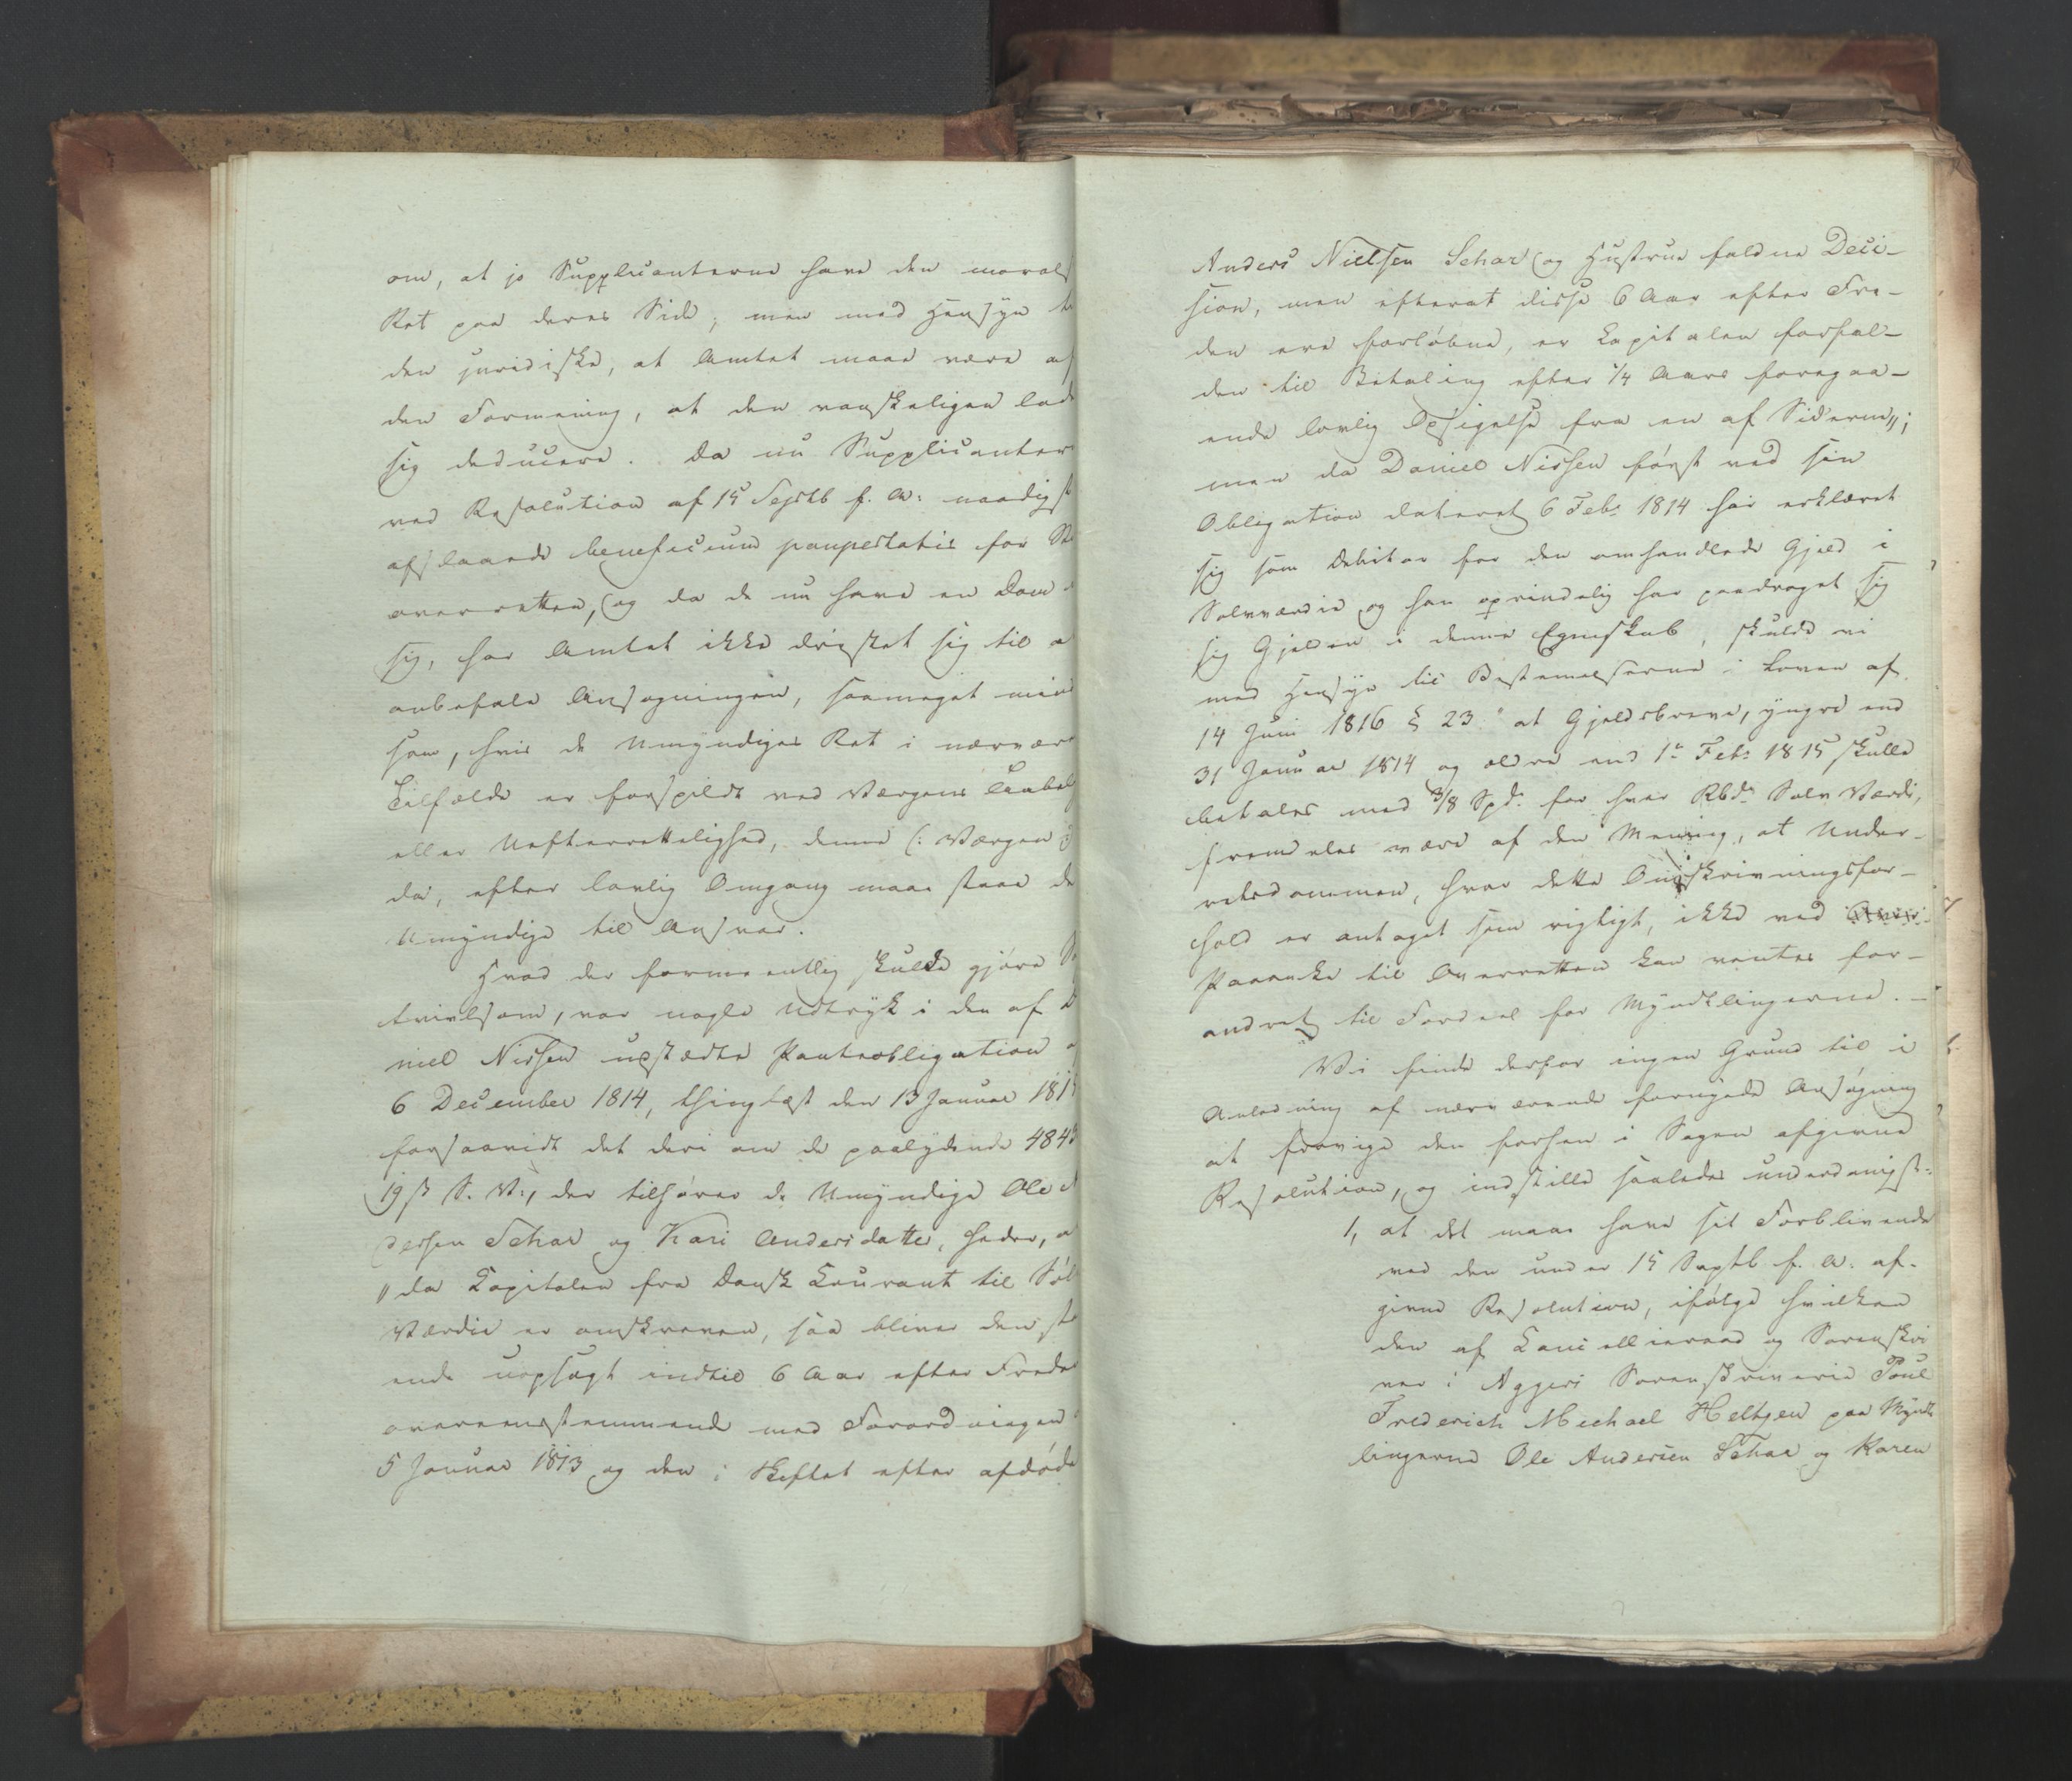 om, at jo Supplicanterne have den moralsk
Ret paa deres Side; men med Hensyn til
den juridiske, at Amtet maae være af
den Formening, at den vanskeligen lade
sig deducere. Da nu Supplicanter
ved Resolution af 15 Septb f. A: naadigst
afslaaede beneficium paupertatis for
overretten, og da de nu have en Dom
sig, har Amtet ikke dristet sig til
anbefale Ansøgningen, saameget mind
som, hvis de Umyndiges Ret i nærvær
Tilfælde er forspildt ved Værgens
eller Uefterrettelighed, denne (: Værgen
da, efter lovlig Omgang maae staae de
Umyndige til Ansvar.
Hvad der formeentlig skulde gjøre
tvivlsom, var nogle Udtryk i den af
niel Nissen udstædte Panteobligation
6 December 1814, thinglæst den 13 Januar 181
forsaavidt det deri om de paalydende 484
19 s S. V:, der tilhører de Umyndige Ole
dersen Schar og Kari Andersdatter, heder,
"da Capitalen fra Dansk Courant til Sølv
Værdie er omskreven, saa bliver den
ende uopsagt indtil 6 Aar efter Freden
overeensstemmende med Forordningen
5 Januar 1813 og den i Skiftet efter afdøde
Anders Nielsen Schar og Hustrue faldne Deci-
sion, men efterat disse 6 Aar efter Fre-
den ere forløbne, er Capitalen forfal-
den til Betaling efter 1/4 Aars foregaa-
ende lovlig Opsigelse fra en af Siderne";
men da Daniel Nissen først ved sin
Obligation dateret 6 Feb: 1814 har erklæret
sig som Debitor for den omhandlede Gjeld i
Sølvværdie og han oprindelig har paadraget sig
sig Gjelden i denne Egenskab, skulde vi
med Hensyn til Bestemmelserne i Loven af
14 Juni 1816 § 23 " at Gjeldsbreve, yngre end
31 Januar 1814 og ældre end 1e Feb: 1815 skulle
betales med 3/8 Spd. for hver Rbd. Sølv Værdi,
fremdeles være af den Mening, at Under-
retsdommen, hvor dette Omskrivningsfor-
hold er antaget som rigtigt, ikke ved
Paaanke til Overretten kan ventes for-
andret til Fordeel for Myndtlingerne. -
Vi finde derfor ingen Grund til i
Anledning af nærværende fornyede Ansøgning
at fravige den forhen i Sagen afgivne
Resolution, og indstille saaledes underdanigst:
1, at det maae have sit Forblivende
ved den under 15 Septb f. A. af-
givne Resolution, ifølge hvilken
den af Cancellieraad og Sorenskri
ver i Aggers Sorenskriverie Poul
Frederich Michael Heltzen paa Myndt
lingerne Ole Andersen Schar og Karen